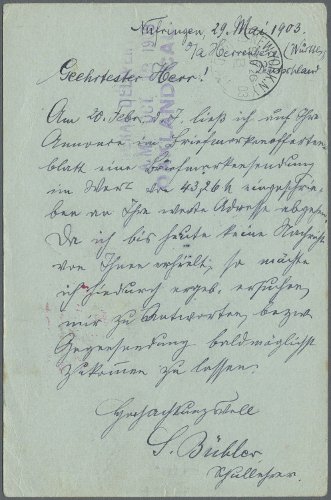 Nebringen, 29. Mai 1903.
o/a Herrenberg (Württbg.)
Deutschland
Geehrtester Herr!
Am 20. Febr. d. J. ließ ich auf Ihre
Annonce im Briefmarkenofferten-
blatt eine Briefmarkensendung
im Wert von 43,26 M eingeschrie-
ben an Ihre werte Adresse abgehen.
Da ich bis heute keine Nachricht
von Ihnen erhielt, so möchte
ich hiedurch ergeb. ersuchen,
mir zu Antworten bezw.
Gegensendung baldmöglichst
zukommen zu lassen.
Hochachtungsvoll
S. Bühler
Schullehrer.